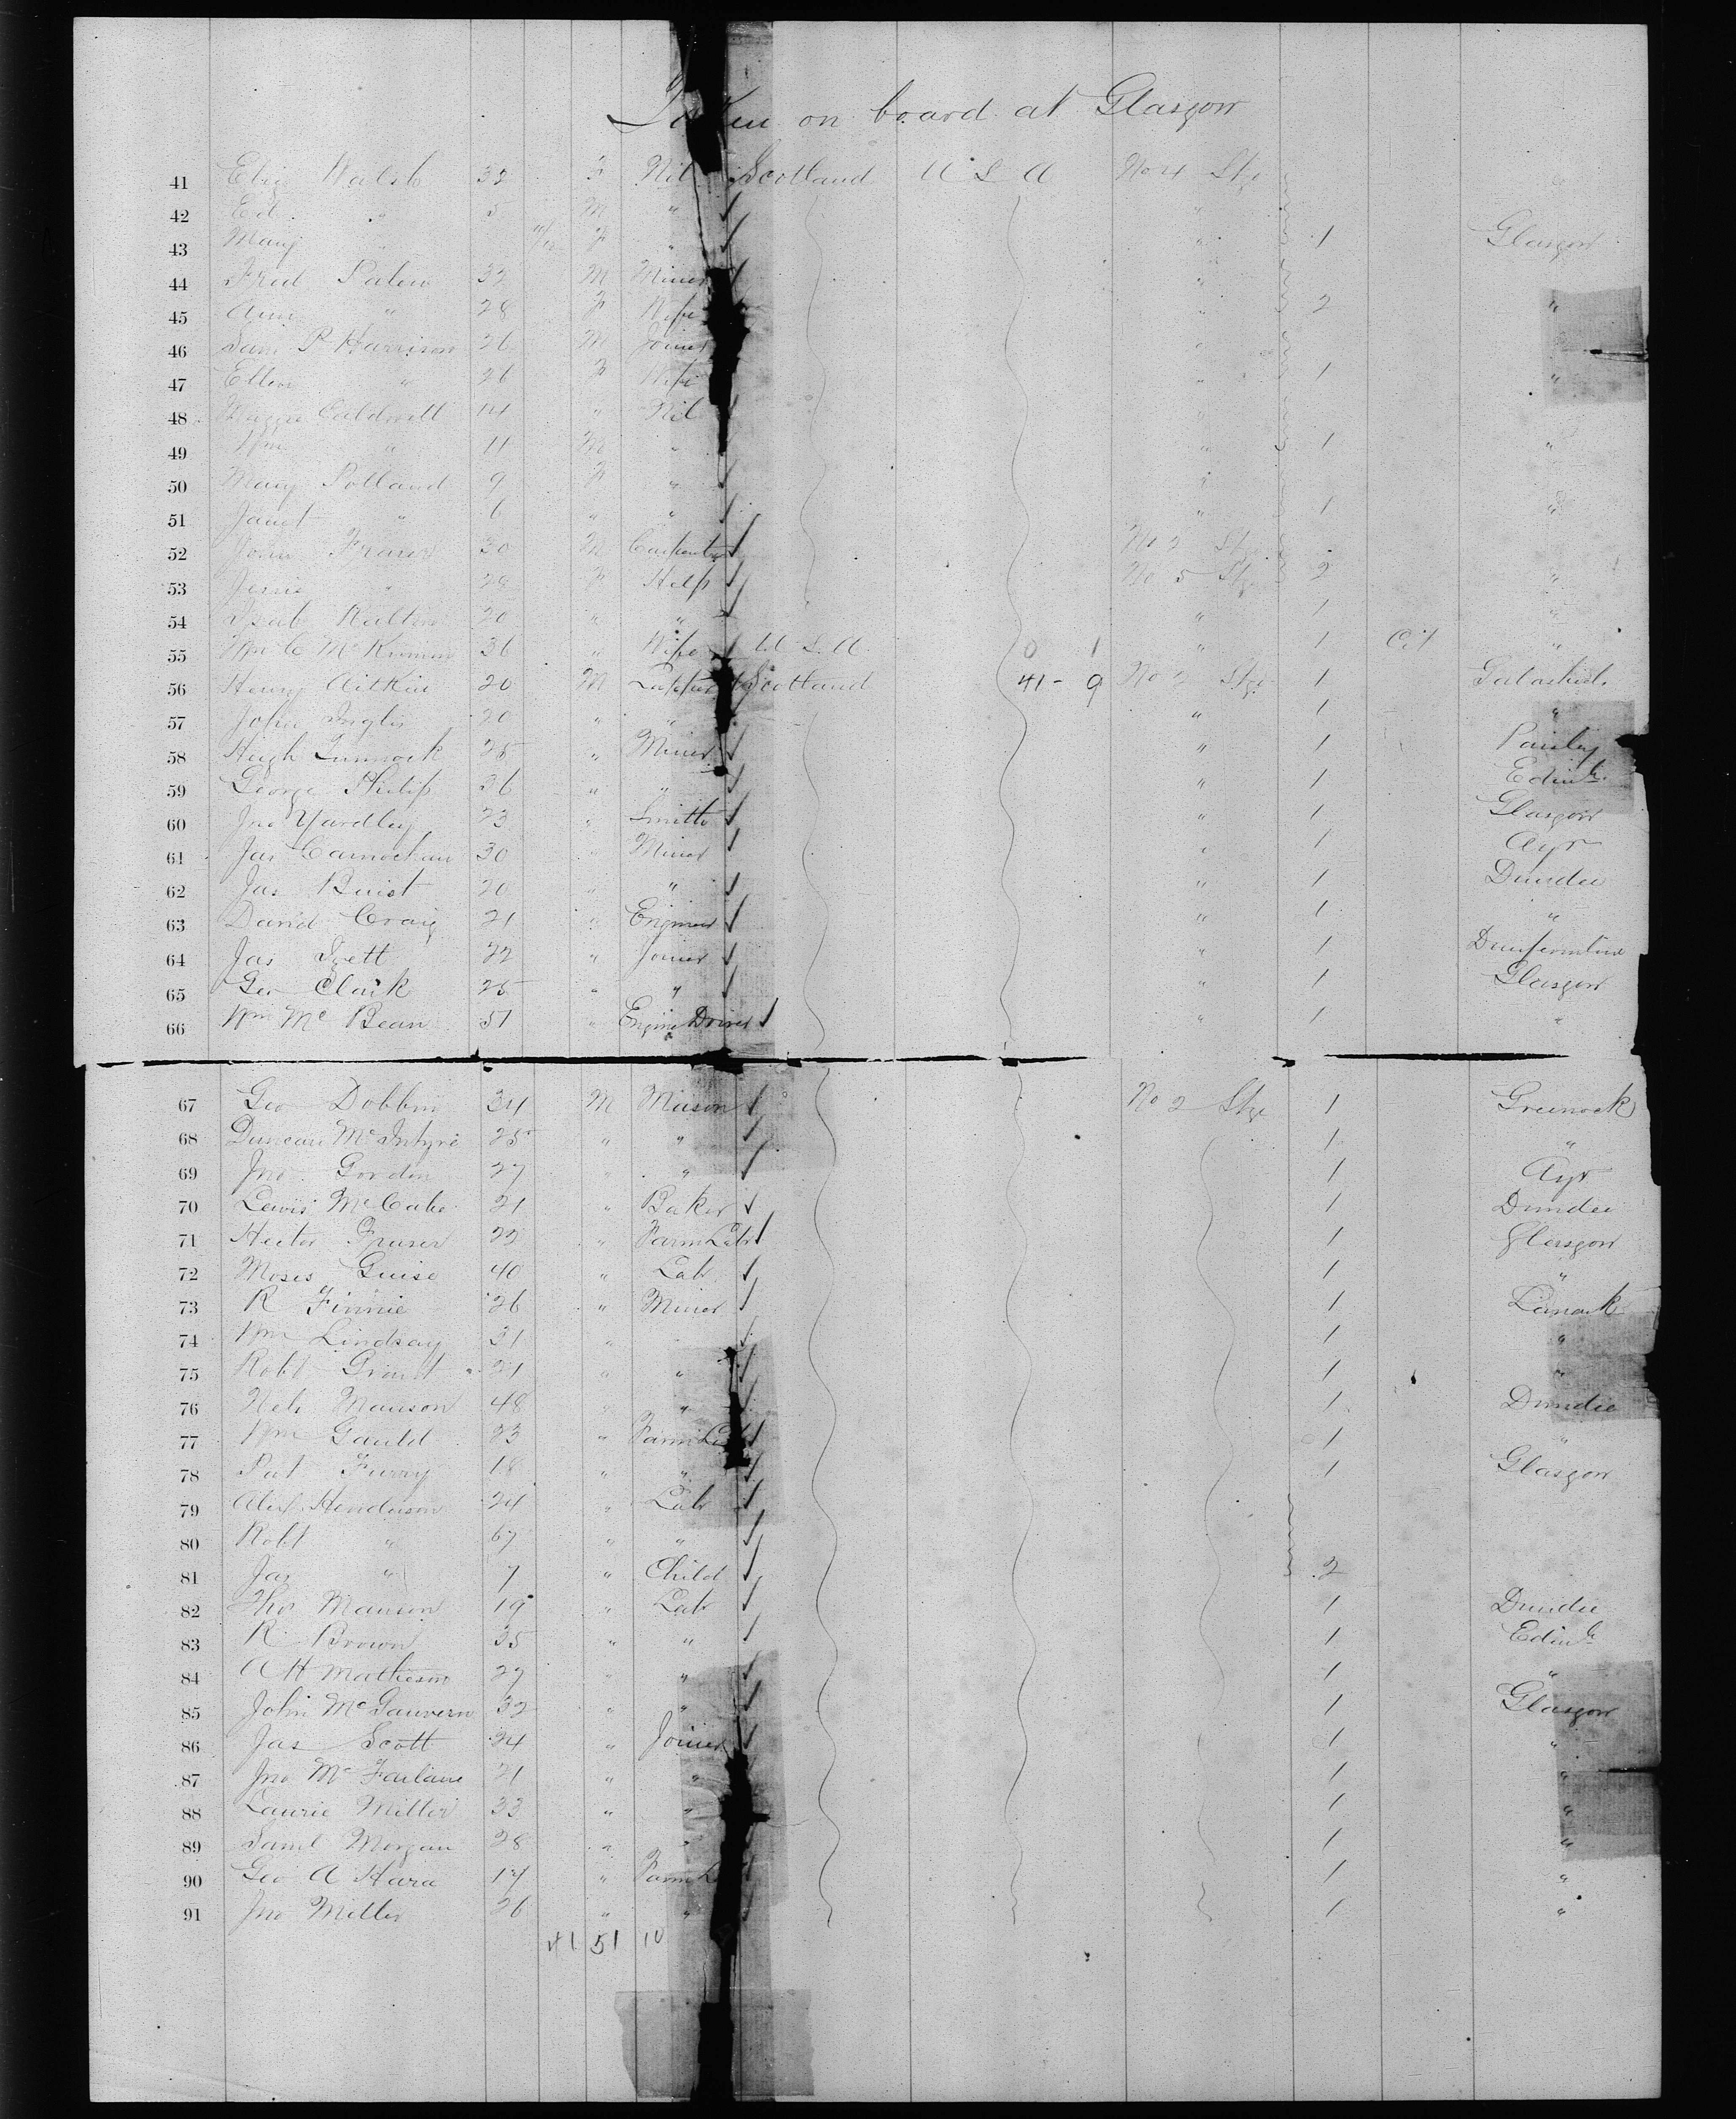 Taken on board at Glasgow
41 Eliz Walsh 32 F Nil Scotland U S A No 4 Stge
42 Ed " 5 M " "
43 Mary " 11/12 F " " 1 Glasgow
44 Fred 32 M Miner "
45 Ann " 28 F Wife " 2 "
46 Sam P Harrison 26 M Joiner "
47 Ellen " 26 F Wife " 1 "
48 Maggie Caldwell 14 " Nil "
49 Wm " 11 M " " 1 "
50 Mary Polland 9 F " "
51 Janet " 6 " " " 1 "
52 John Fraser 30 M Carpenter No 2 Stge
53 Jessie " 28 F Help No 5 Stge 2 "
54 Isab 20 " " " 1 "
55 36 " Wife U S A 0 1 " 1 Cit "
56 Henry Aitkin 20 M Scotland 41 - 9 No 2 Stge 1 Galashiels
57 John Inglis 20 " " " 1 "
58 Hugh 25 " Miner " 1 Paisley
59 George Philip 36 " " " 1 Edinh
60 Jno Yardley 23 " Smith " 1 Glasgow
61 Jas Carnochan 30 " Miner " 1 Ayr
62 Jas Buist 20 " " " 1 Dundee
63 David Craig 21 " Engineer " 1 "
64 Jas Izett 22 " Joiner " 1 Dunfermline
65 Geo Clark 25 " " " 1 Glasgow
66 Wm Mc Bean 51 " Engine Driver " 1 "
67 Geo Dobbin 34 M Mason No 2 Stge 1 Greenock
68 Duncan McIntyre 25 " " 1 "
69 Jno Gordon 27 " " 1 Ayr
70 Lewis McCabe 21 " Baker 1 Dundee
71 Hector Fraser 22 " Farm Labr 1 Glasgow
72 Moses Guise 40 " Labr 1 "
73 R Finnie 26 " Miner 1 Lanark
74 Wm Lindsay 31 " " 1 "
75 Robt Grant 21 " " 1 "
76 Manson 48 " " 1 Dundee
77 Wm Gauld 23 " Farm La 1 "
78 Pat Furry 18 " " 1 Glasgow
79 Alex Henderson 24 " Labr
80 Robt " 67 " "
81 Jas " 7 " Child 2
82 Thos Manson 19 " Labr 1 Dundee
83 R Brown 35 " " 1 Edinh
84 A H Matheson 27 " " 1 "
85 John McGauvern 32 " " 1 Glasgow
86 Jas Scott 24 " Joiner 1 "
87 Jno McFarlane 21 " " 1 "
88 Laurie Miller 33 " " 1 "
89 Saml Morgan 28 " " 1 "
90 Geo A Hara 17 " Farm L 1 "
91 Jno Miller 26 " " 1 "
41 51 10